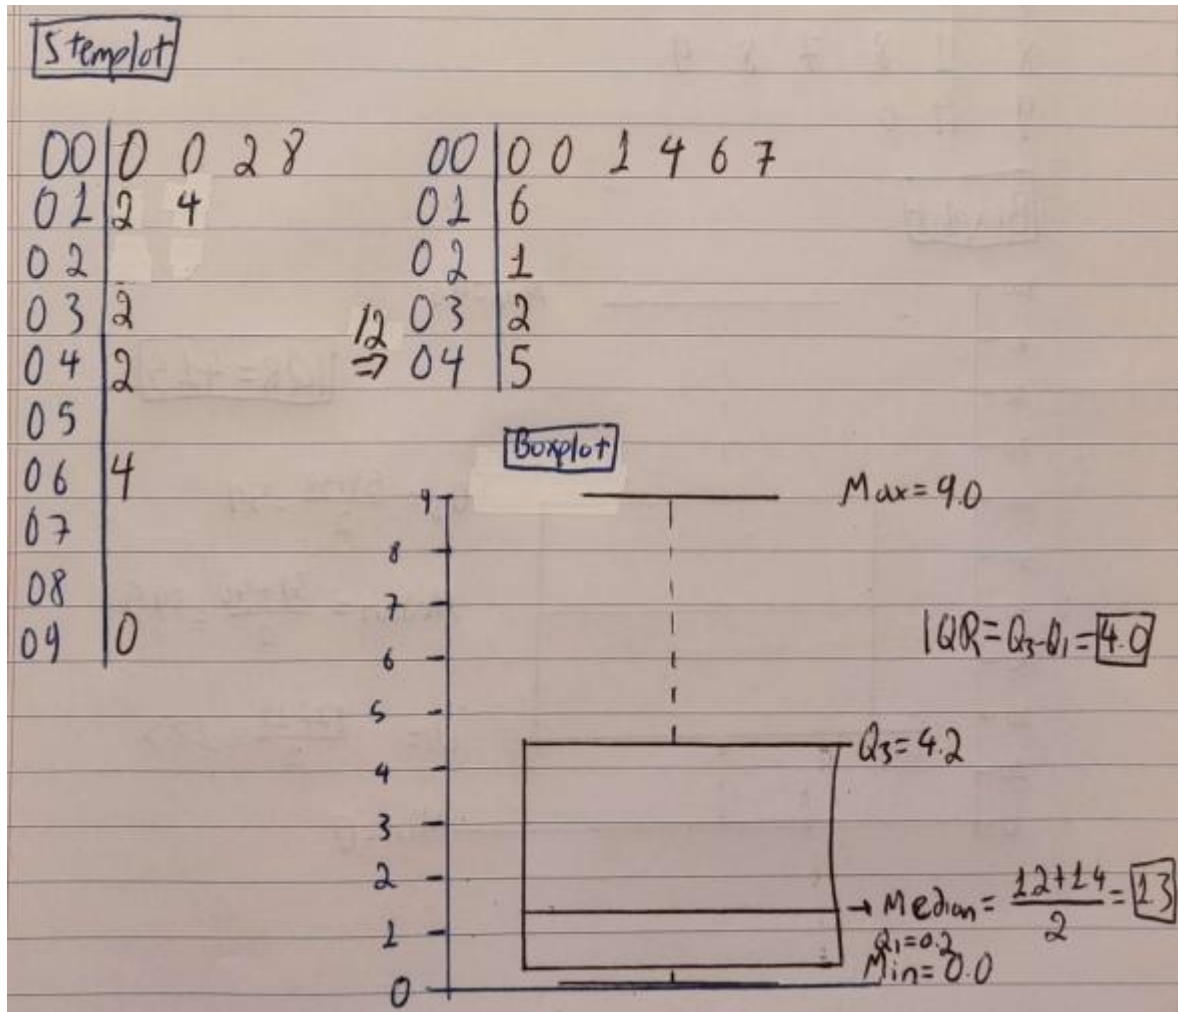 Stemplot
00 | 0 0 2 8
01 | 2 4
02 |
03 | 2
04 | 2
05 |
06 | 4
07 |
08 |
09 | 0
00 | 0 0 1 4 6 7
01 | 6
02 | 1
03 | 2
12 ⇒ 04 | 5
Boxplot
9
8
7
6
5
4
3
2
1
0
Max=9.0
IQR=Q3-Q1=4.0
Q3=4.2
→ Median= 12+14 / 2 = 13
Q1=0.2
Min=0.0